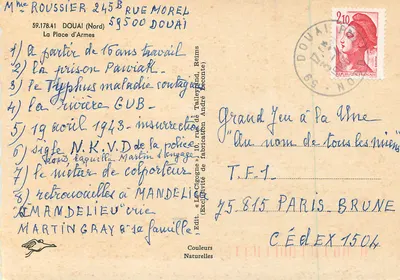 Mme ROUSSIER 245B RUE MOREL
59500 DOUAI
59.178.41 DOUAI (Nord)
La Place d'Armes
1) a partir de 16 ans travail
2) la prison Pawiak.
3) le Typhus maladie contagieuse
4) la rivière GUB.
5) 19 avril 1943 - insurrection
6) sigle N.K.V.D de la police
dans laquelle Martin s'engage
7) le métier de colporteur
8) retrouvailles à MANDELIEU
MANDELIEU
MARTIN GRAY & sa famille
Edit. "La Cigogne",
(Exclusivité de fabrication André Leconte)
Couleurs
Naturelles
DOUAI
59
2,10
Grand Jeu à la Une
"Au nom de tous les miens"
T.F.1
75.815 PARIS-BRUNE
CÉDEX 1504